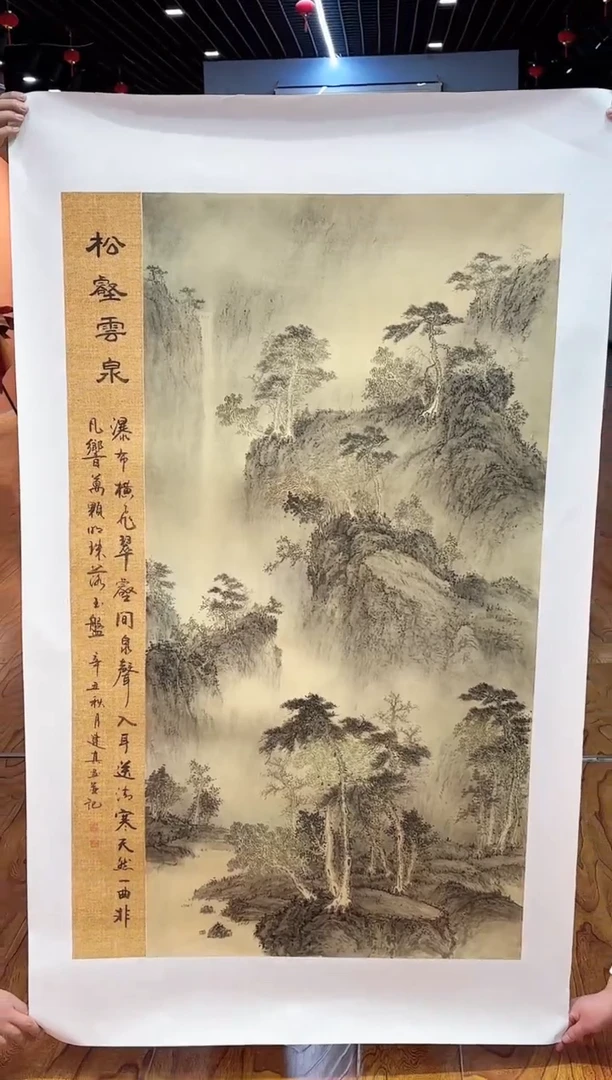 松壑雲泉
瀑布橫飛翠壑間泉聲入耳送清寒天然一曲非
凡響萬顆明珠落玉盤 辛丑秋月建真画並記